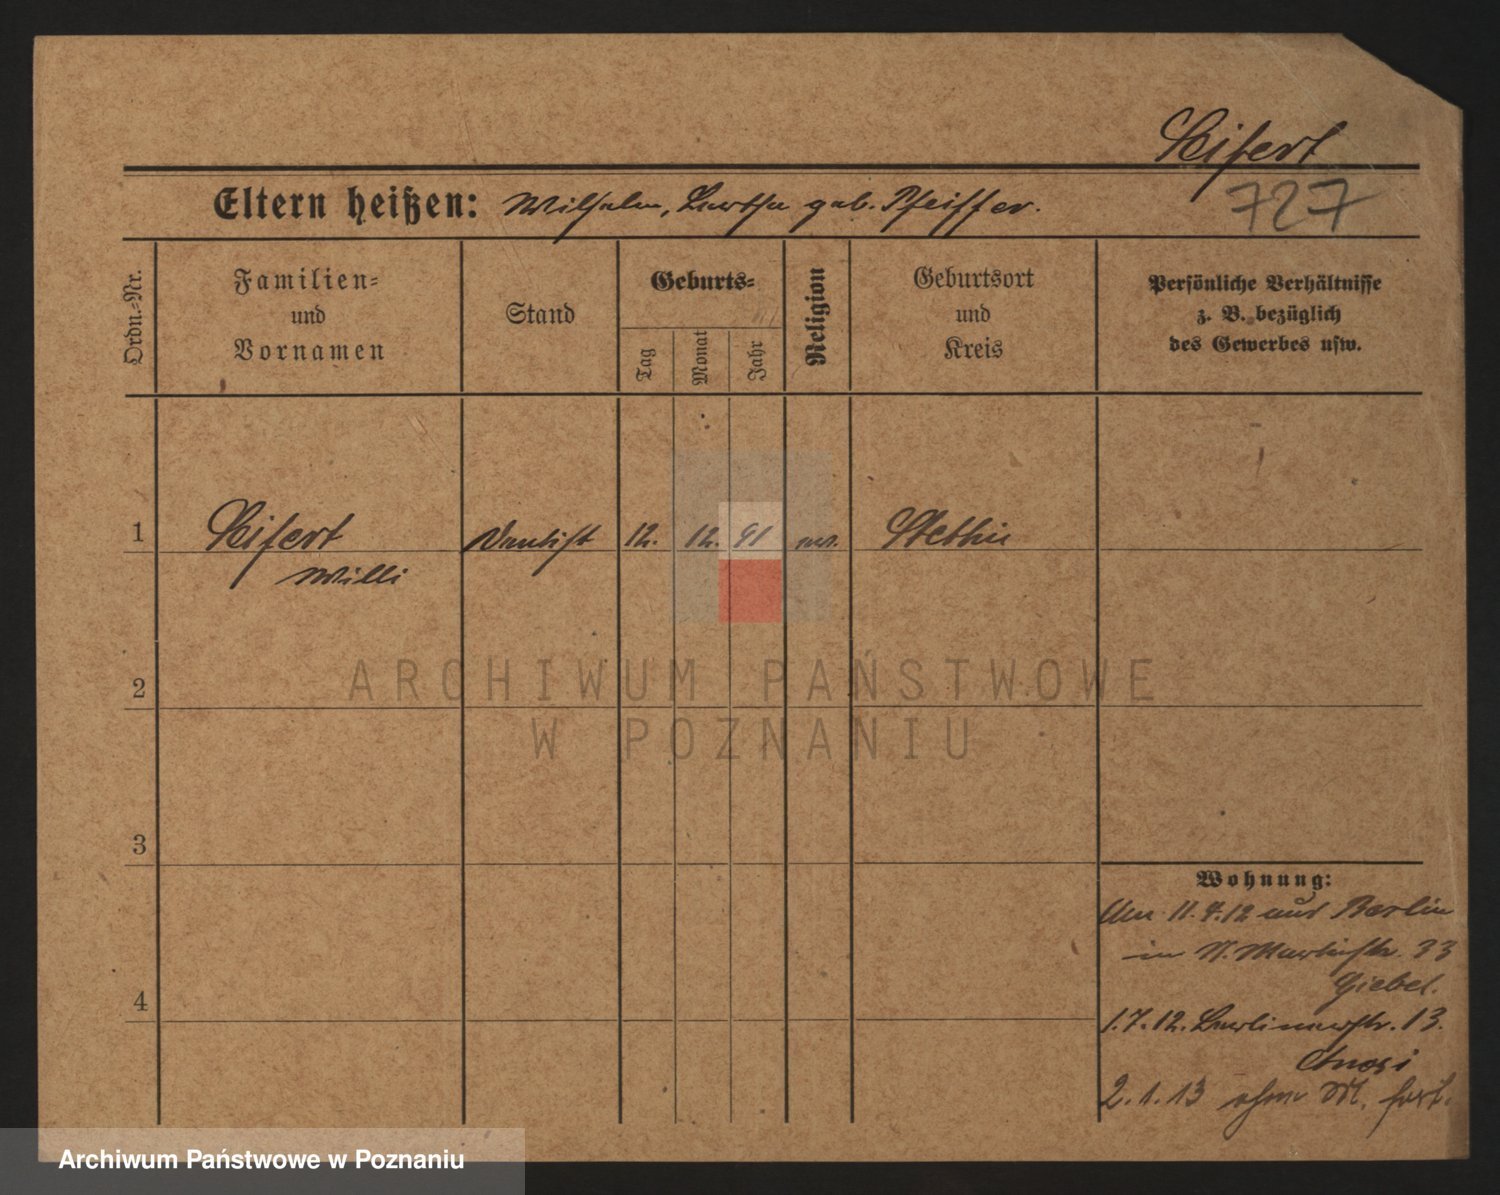 Seifert
Eltern heißen: Wilhelm, Bertha geb. Pfeiffer.
727
Ordn.-Nr.
Familien-
und
Vornamen
Stand
Geburts-
Tag
Monat
Jahr
Religion
Geburtsort
und
Kreis
Persönliche Verhältnisse
z. B. bezüglich
des Gewerbes usw.
1
Seifert
Willi
Dentist
12.
12.
91
ev.
Stettin
2
3
4
ARCHIWUM PAŃSTWOWE
W POZNANIU
Wohnung:
11. 4. 12 aus Berlin
in St. Martinstr. 33
Giebel.
1. 7. 12. Berlinerstr. 13.
2. 1. 13 ohne M. fort.
Archiwum Państwowe w Poznaniu